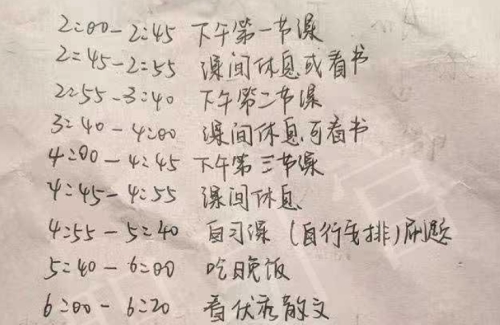 2:00-2:45 下午第一节课
2:45-2:55 课间休息或看书
2:55-3:40 下午第二节课
3:40-4:00 课间休息可看书
4:00-4:45 下午第三节课
4:45-4:55 课间休息
4:55-5:40 自习课(自行安排)刷题
5:40-6:00 吃晚饭
6:00-6:20 看优秀散文